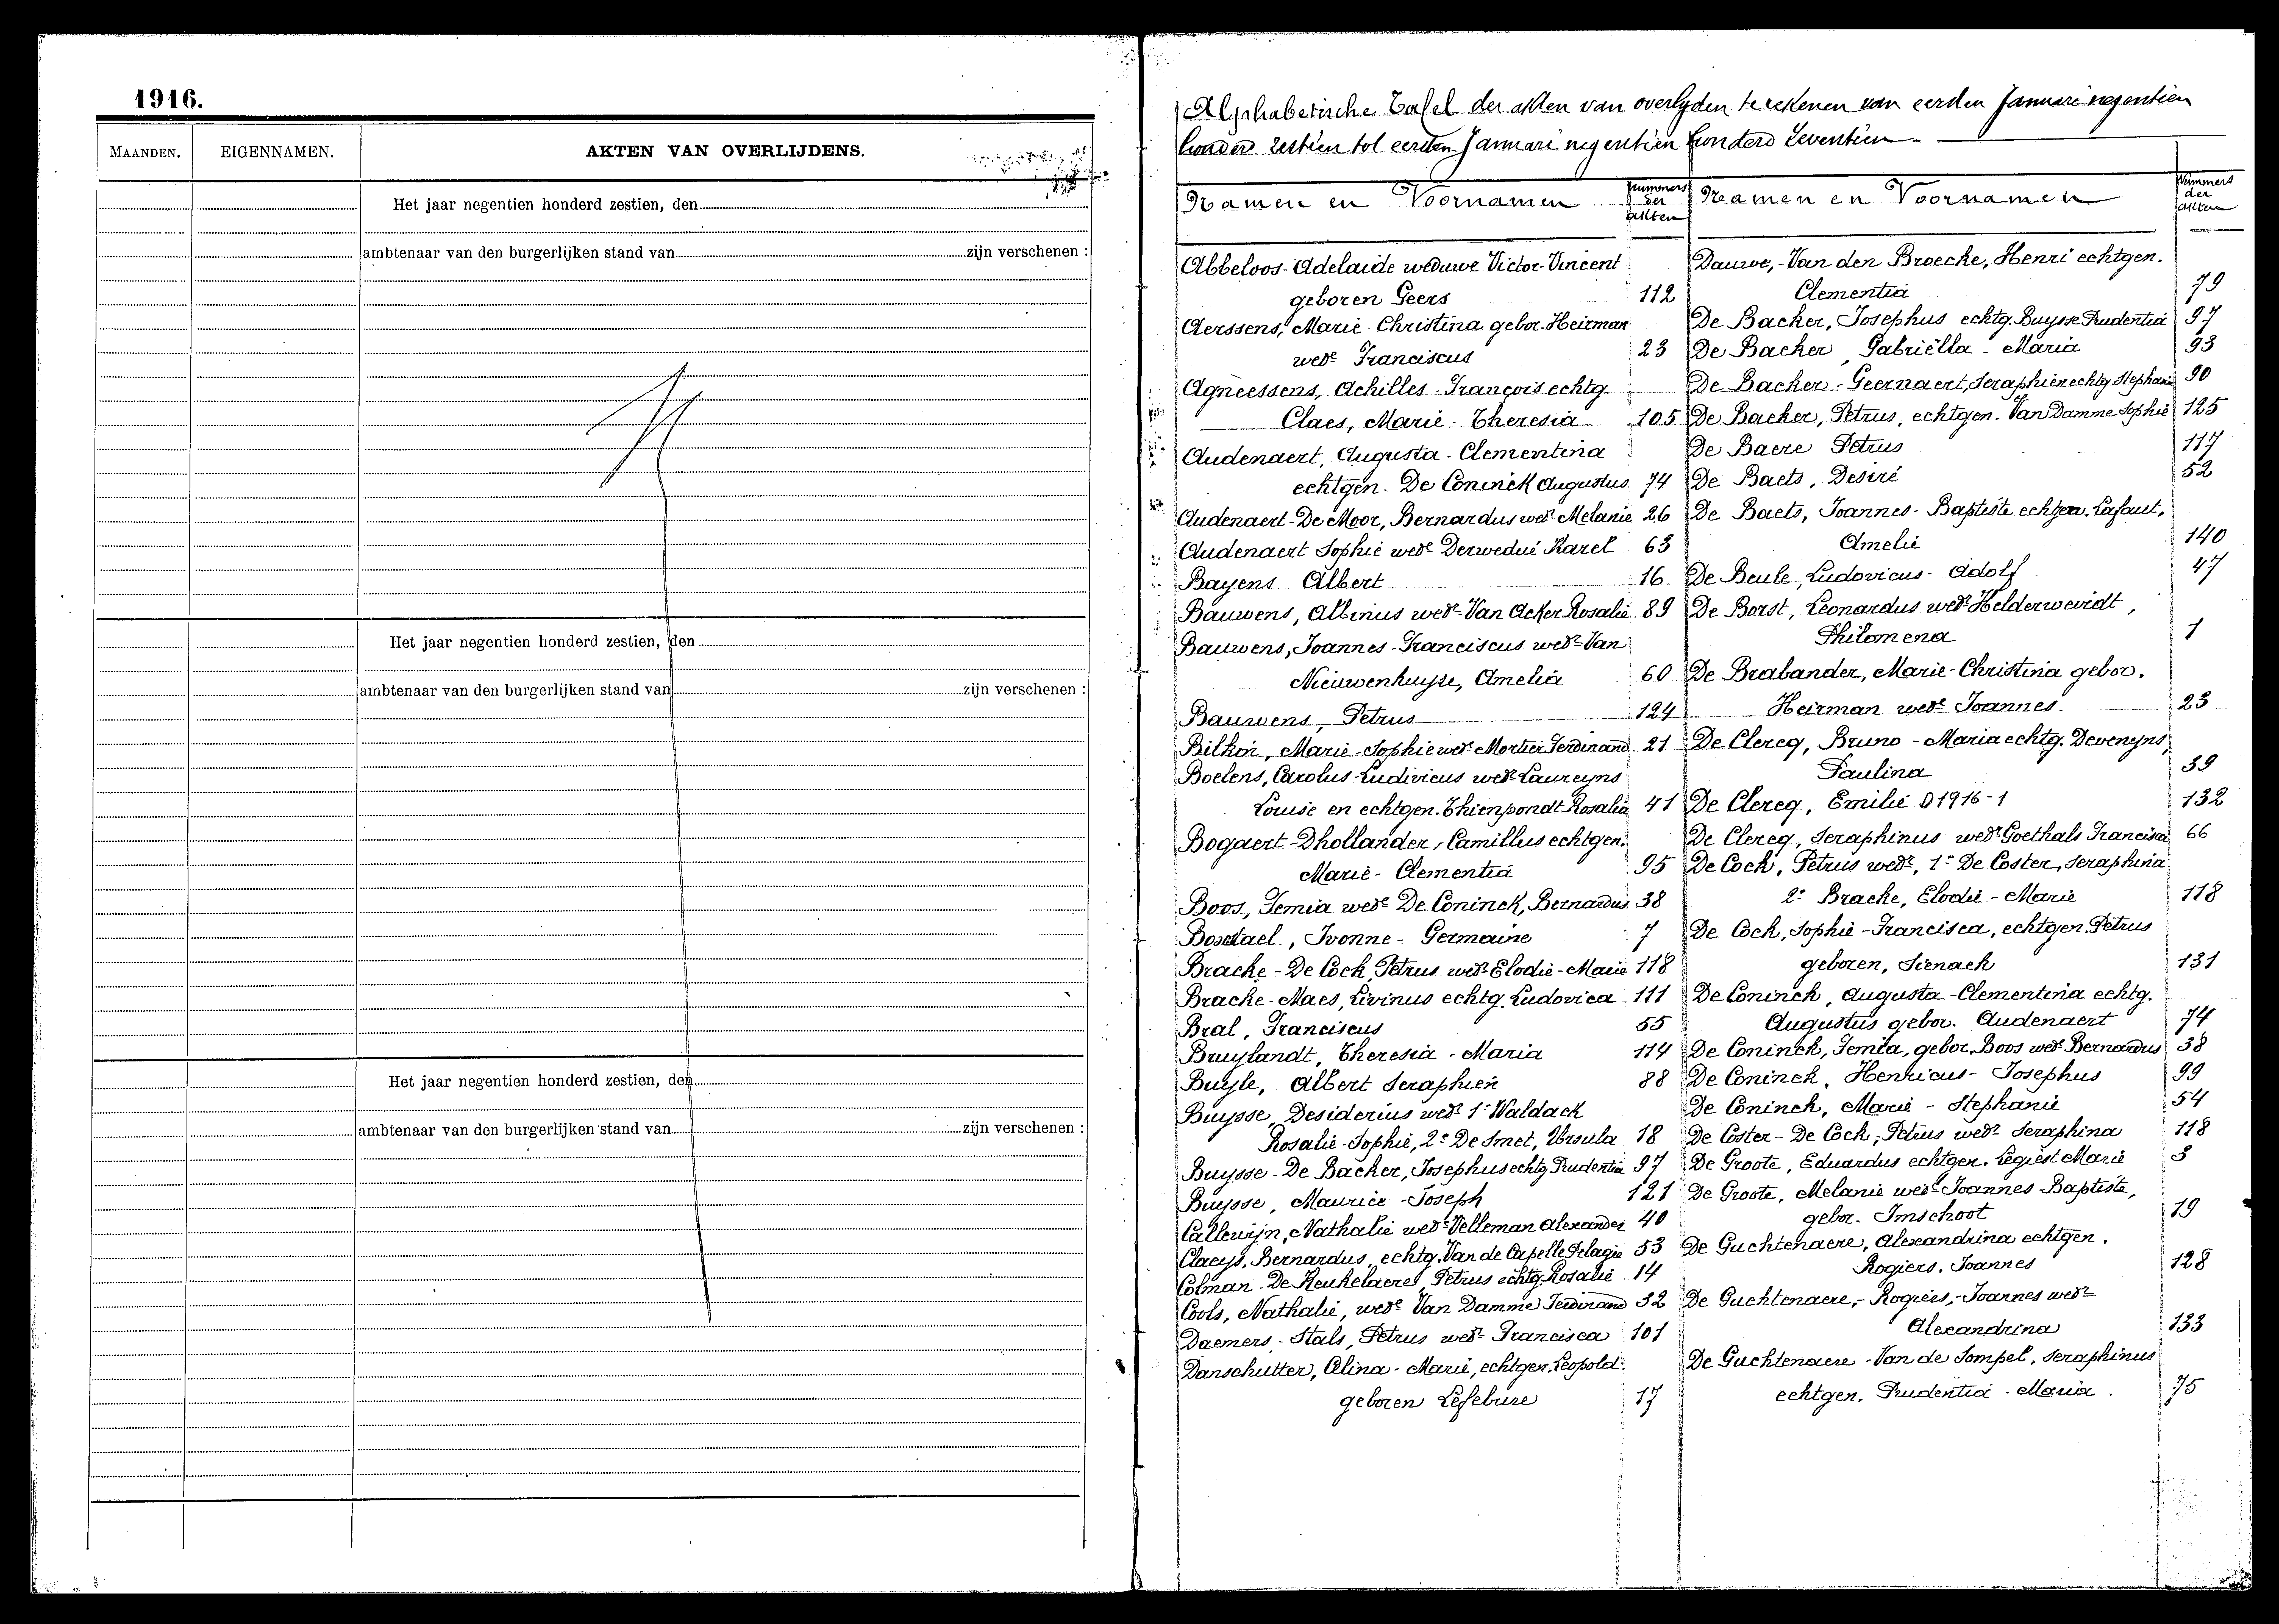 1916.
MAANDEN. EIGENNAMEN. AKTEN VAN OVERLIJDENS.
Het jaar negentien honderd zestien, den
ambtenaar van den burgerlijken stand van zijn verschenen :
Het jaar negentien honderd zestien, den
ambtenaar van den burgerlijken stand van zijn verschenen :
Het jaar negentien honderd zestien, den
ambtenaar van den burgerlijken stand van zijn verschenen :
Alphabetische Tafel der akten van overlyden te rekenen van eersten Januari negentien
honderd zestien tot eersten Januari negentien honderd zeventien
Namen en Voornamen Nummers der akten
Abbeloos-Adelaide weduwe Victor-Vincent
geboren Geers 112
Aerssens, Marie-Christina gebor. Heirman
wed.e Franciscus 23
Agneessens, Achilles-François echtg
Claes, Marie-Theresia 105
Audenaert, Augusta-Clementina
echtgen. De Coninck Augustus 74
Audenaert-De Moor, Bernardus wed.r Melanie 26
Audenaert Sophie wed.e Derwedué Karel 63
Bayens Albert 16
Bauwens, Albinus wed.r Van Acker Rosalie 89
Bauwens, Joannes-Franciscus wed.r Van
Nieuwenhuyse, Amelia 60
Bauwens, Petrus 124
Bilkin, Marie-Sophie wed.e Mortier Ferdinand 21
Boelens, Carolus-Ludivicus wed.r Laureyns
Louise en echtgen. Thienpondt Rosalia 41
Bogaert-Dhollander, Camillus echtgen.
Marie-Clementia 95
Boos, Femia wed.e De Coninck, Bernardus 38
, Ivonne-Germaine 7
Bracke-De Cock, Petrus wed.r Elodie-Marie 118
Bracke-Maes, Livinus echtg. Ludovica 111
Bral, Franciscus 55
Bruylandt, Theresia-Maria 114
Buyle, Albert Seraphien 88
Buysse, Desiderius wed.r 1.e Waldack
Rosalie-Sophie, 2.e De Smet, Ursula 18
Buysse-De Backer, Josephus echtg Prudentia 97
Buysse, Maurice-Joseph 121
Callewijn, Nathalie wed.e Velleman Alexander 40
Claeys, Bernardus, echtg. Van de Capelle Pelagie 53
Colman-De Keukelaere, Petrus echtg. Rosalie 14
Cools, Nathalie, wed.e Van Damme Ferdinand 32
Daemers-Stals, Petrus wed.r Francisca 101
Danschutter, Alina-Marie, echtgen. Leopold
geboren Lefebure 17
Namen en Voornamen Nummers der akten
Dauwe,-Van den Broecke, Henri echtgen.
Clementia 79
De Backer, Josephus echtg. Buysse Prudentia 97
De Backer, Gabriëlla-Maria 93
De Backer-Geernaert, Seraphien echtg Stephanie 90
De Backer, Petrus, echtgen. Van Damme Sophie 125
De Baere Petrus 117
De Baets, Desiré 52
De Baets, Joannes-Baptiste echtgen. Lafaut,
Amelie 140
De Beule, Ludovicus-Adolf 47
De Borst, Leonardus wed.r Helderweirdt,
Philomena 1
De Brabander, Marie-Christina gebor.
Heirman wed.e Joannes 23
De Clercq, Bruno-Maria echtg. Devenyns,
Paulina 39
De Clercq, Emilie D1916-1 132
De Clercq, Seraphinus wed.r Goethals Francisca 66
De Cock, Petrus wed.r, 1.e De Coster, Seraphina
2.e Bracke, Elodie-Marie 118
De Cock, Sophie-Francisca, echtgen. Petrus
geboren, Sienack 131
De Coninck, Augusta-Clementina echtg.
Augustus gebor. Audenaert 74
De Coninck, Femia, gebor. Boos wed.e Bernardus 38
De Coninck, Henricus-Josephus 99
De Coninck, Marie-Stephanie 54
De Coster-De Cock, Petrus wed.r Seraphina 118
De Groote, Eduardus echtgen. Legiest Marie 3
De Groote, Melanie wed.e Joannes-Baptiste,
gebor. Imschoot 19
De Guchtenaere, Alexandrina echtgen.
Rogiers, Joannes 128
De Guchtenaere,-Rogiers,-Joannes wed.r
Alexandrina 133
De Guchtenaere-Van de Sompel, Seraphinus
echtgen. Prudentia-Maria 75